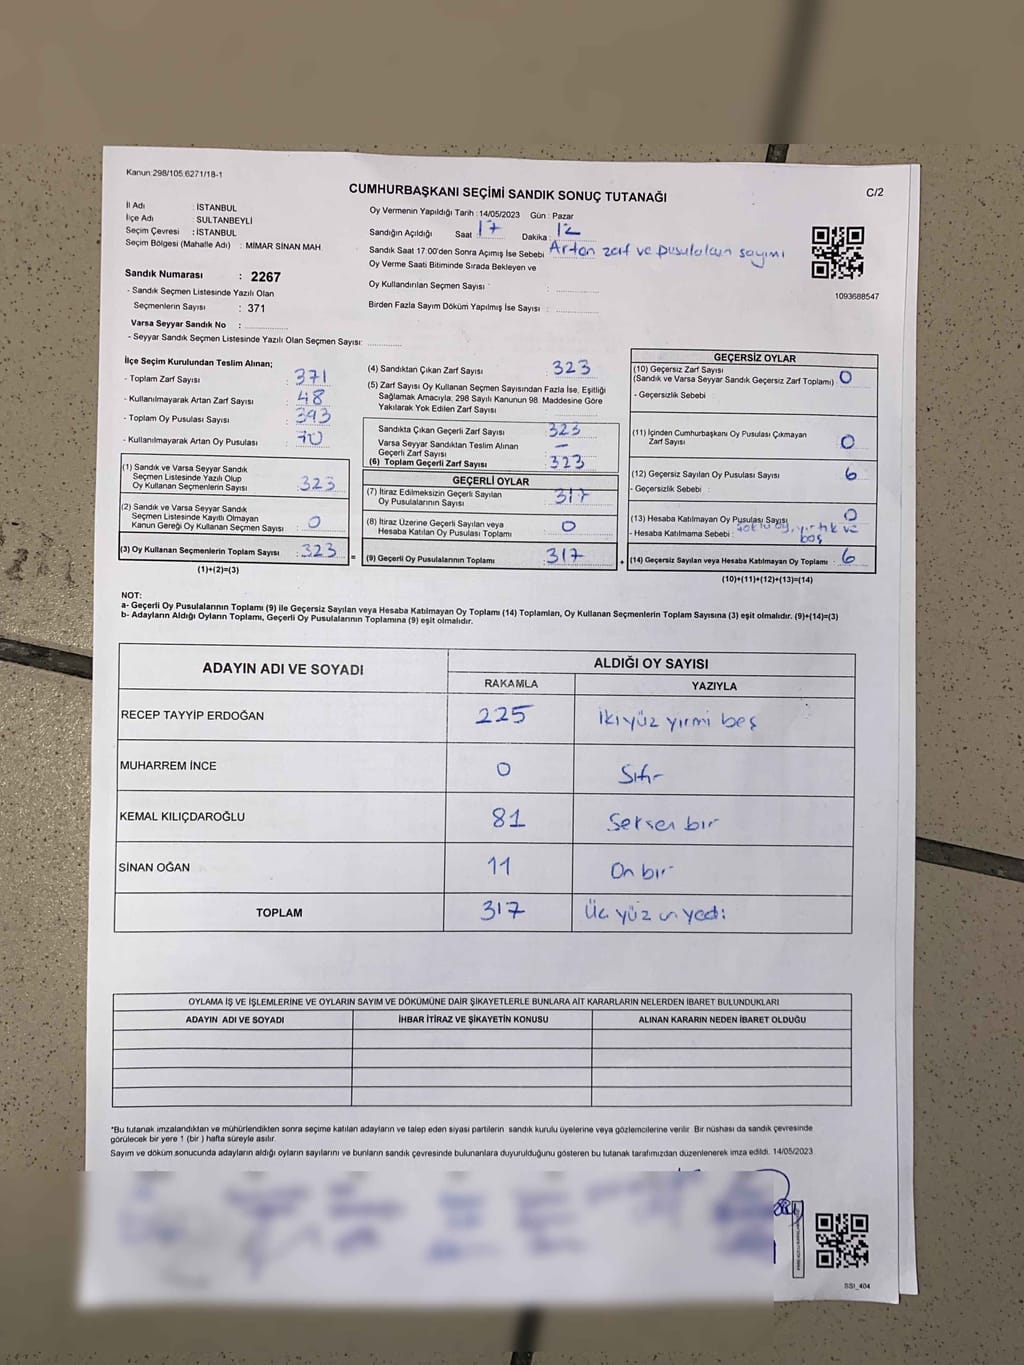 Kanun:298/105.6271/18-1
CUMHURBAŞKANI SEÇİMİ SANDIK SONUÇ TUTANAĞI
C/2
İl Adı : İSTANBUL
İlçe Adı : SULTANBEYLİ
Seçim Çevresi : İSTANBUL
Seçim Bölgesi (Mahalle Adı) : MİMAR SİNAN MAH.
Sandık Numarası : 2267
- Sandık Seçmen Listesinde Yazılı Olan
Seçmenlerin Sayısı : 371
Varsa Seyyar Sandık No :
- Seyyar Sandık Seçmen Listesinde Yazılı Olan Seçmen Sayısı:
Oy Vermenin Yapıldığı Tarih :14/05/2023 Gün : Pazar
Sandığın Açıldığı Saat : 17 Dakika : 12
Sandık Saat 17:00'den Sonra Açımış İse Sebebi : Artan zarf ve pusulaların sayımı
Oy Verme Saati Bitiminde Sırada Bekleyen ve
Oy Kullandırılan Seçmen Sayısı :
Birden Fazla Sayım Döküm Yapılmış İse Sayısı :
1093688547
İlçe Seçim Kurulundan Teslim Alınan;
- Toplam Zarf Sayısı : 371
- Kullanılmayarak Artan Zarf Sayısı : 48
- Toplam Oy Pusulası Sayısı : 393
- Kullanılmayarak Artan Oy Pusulası : 70
(1) Sandık ve Varsa Seyyar Sandık
Seçmen Listesinde Yazılı Olup
Oy Kullanan Seçmenlerin Sayısı : 323
(2) Sandık ve Varsa Seyyar Sandık
Seçmen Listesinde Kayıtlı Olmayan
Kanun Gereği Oy Kullanan Seçmen Sayısı : 0
(3) Oy Kullanan Seçmenlerin Toplam Sayısı : 323
(1)+(2)=(3)
=
(4) Sandıktan Çıkan Zarf Sayısı : 323
(5) Zarf Sayısı Oy Kullanan Seçmen Sayısından Fazla İse, Eşitliği
Sağlamak Amacıyla; 298 Sayılı Kanunun 98. Maddesine Göre
Yakılarak Yok Edilen Zarf Sayısı :
Sandıkta Çıkan Geçerli Zarf Sayısı : 323
Varsa Seyyar Sandıktan Teslim Alınan
Geçerli Zarf Sayısı : —
(6) Toplam Geçerli Zarf Sayısı : 323
GEÇERLİ OYLAR
(7) İtiraz Edilmeksizin Geçerli Sayılan
Oy Pusulalarının Sayısı : 317
(8) İtiraz Üzerine Geçerli Sayılan veya
Hesaba Katılan Oy Pusulası Toplamı : 0
(9) Geçerli Oy Pusulalarının Toplamı : 317
+
GEÇERSİZ OYLAR
(10) Geçersiz Zarf Sayısı
(Sandık ve Varsa Seyyar Sandık Geçersiz Zarf Toplamı) : 0
- Geçersizlik Sebebi :
(11) İçinden Cumhurbaşkanı Oy Pusulası Çıkmayan
Zarf Sayısı : 0
(12) Geçersiz Sayılan Oy Pusulası Sayısı : 6
- Geçersizlik Sebebi :
(13) Hesaba Katılmayan Oy Pusulası Sayısı : 0
- Hesaba Katılmama Sebebi : oy, yırtık ve
boş
(14) Geçersiz Sayılan veya Hesaba Katılmayan Oy Toplamı : 6
(10)+(11)+(12)+(13)=(14)
NOT:
a- Geçerli Oy Pusulalarının Toplamı (9) ile Geçersiz Sayılan veya Hesaba Katılmayan Oy Toplamı (14) Toplamları, Oy Kullanan Seçmenlerin Toplam Sayısına (3) eşit olmalıdır. (9)+(14)=(3)
b- Adayların Aldığı Oyların Toplamı, Geçerli Oy Pusulalarının Toplamına (9) eşit olmalıdır.
ADAYIN ADI VE SOYADI
ALDIĞI OY SAYISI
RAKAMLA YAZIYLA
RECEP TAYYİP ERDOĞAN 225 İkiyüz yirmi beş
MUHARREM İNCE 0 Sıfır
KEMAL KILIÇDAROĞLU 81 Seksen bir
SİNAN OĞAN 11 On bir
TOPLAM 317 Üç yüz on yedi
OYLAMA İŞ VE İŞLEMLERİNE VE OYLARIN SAYIM VE DÖKÜMÜNE DAİR ŞİKAYETLERLE BUNLARA AİT KARARLARIN NELERDEN İBARET BULUNDUKLARI
ADAYIN ADI VE SOYADI İHBAR İTİRAZ VE ŞİKAYETİN KONUSU ALINAN KARARIN NEDEN İBARET OLDUĞU
*Bu tutanak imzalandıktan ve mühürlendikten sonra seçime katılan adayların ve talep eden siyasi partilerin sandık kurulu üyelerine veya gözlemcilerine verilir. Bir nüshası da sandık çevresinde
görülecek bir yere 1 (bir ) hafta süreyle asılır.
Sayım ve döküm sonucunda adayların aldığı oyların sayılarını ve bunların sandık çevresinde bulunanlara duyurulduğunu gösteren bu tutanak tarafımızdan düzenlenerek imza edildi. 14/05/2023
SSI_404